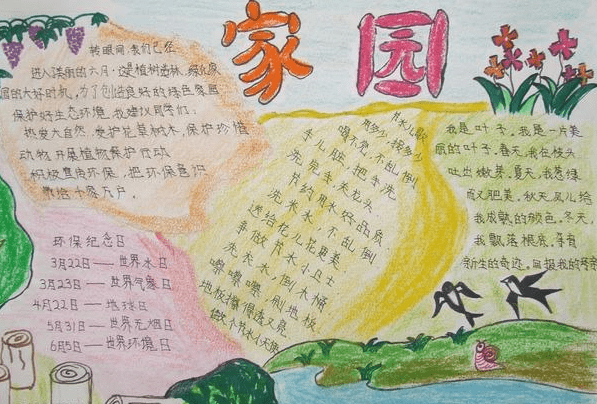 家园
转眼间,我们已经
进入美丽的六月,这是植树造林、绿化家
园的大好时机,为了创造良好的绿色家园
保护好生态环境,我建议同学们:
热爱大自然,爱护花草树木,保护珍惜
动物,开展植物保护行动
积极宣传环保,把环保意识
带给千家万户。
环保纪念日
3月22日——世界水日
3月23日——世界气象日
4月22日——地球日
5月31日——世界无烟日
6月5日——世界环境日
节水儿歌
用多少,接多少
喝不完,不乱倒
手儿脏,把手洗
洗完手,关龙头
节约用水好品质
洗米水,不乱倒
送给花儿花更美
争做节水小卫士
洗洗水,倒水桶
嚓嚓嚓,刷地板
地板擦得透又亮
我是叶子,我是一片美
丽的叶子。春天,我在枝头
吐出嫩芽。夏天,我葱绿
而又肥美。秋天,风儿给
我成熟的颜色。冬天,
我飘落根底,寻育
新生的奇迹。